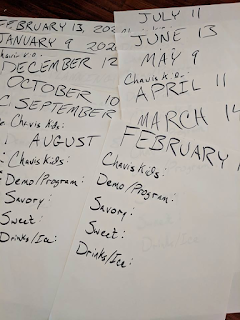 FEBRUARY 13, 202
JANUARY 9 202
DECEMBER 12
OCTOBER 10
SEPTEMBER
Chavis Kids:
AUGUST
Chavis Kids:
Demo/Program:
Savory:
Sweet:
Drinks/Ice:
JULY 11
JUNE 13
MAY 9
Chavis K
APRIL 11
MARCH 14
FEBRUARY
Chavis Kids:
Demo/Program:
Savory:
Sweet:
Drinks/Ice: